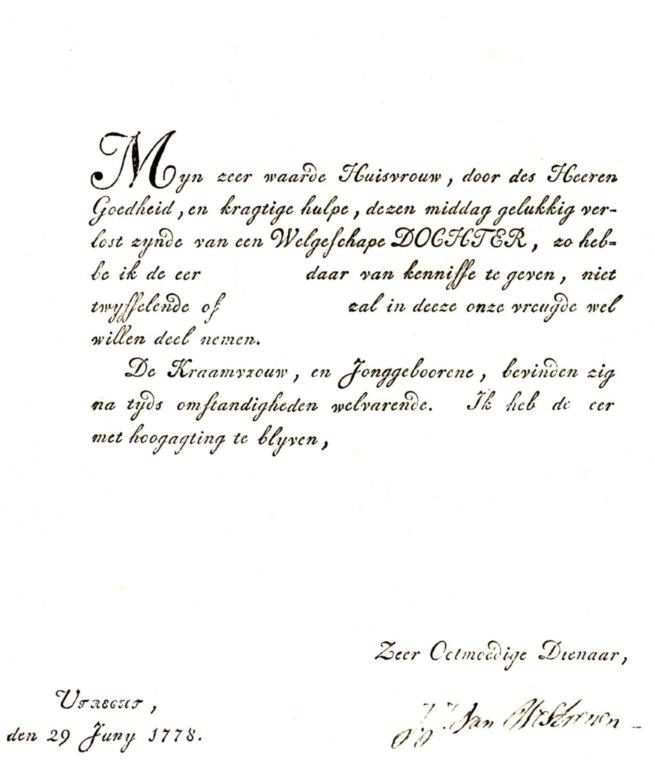 Myn zeer waarde Huisvrouw, door des Heeren
Goedheid, en kragtige hulpe, dezen middag gelukkig ver-
lost zynde van een Welgeschape DOCHTER, zo heb-
be ik de eer daar van kennisse te geven, niet
twyffelende of zal in deeze onze vreugde wel
willen deel nemen.
De Kraamvrouw, en Jonggeboorene, bevinden zig
na tyds omstandigheden welvarende. Ik heb de eer
met hoogagting te blyven,
Zeer Oetmoedige Dienaar,
UTRECHT,
den 29 Juny 1778.
Van Westrenen